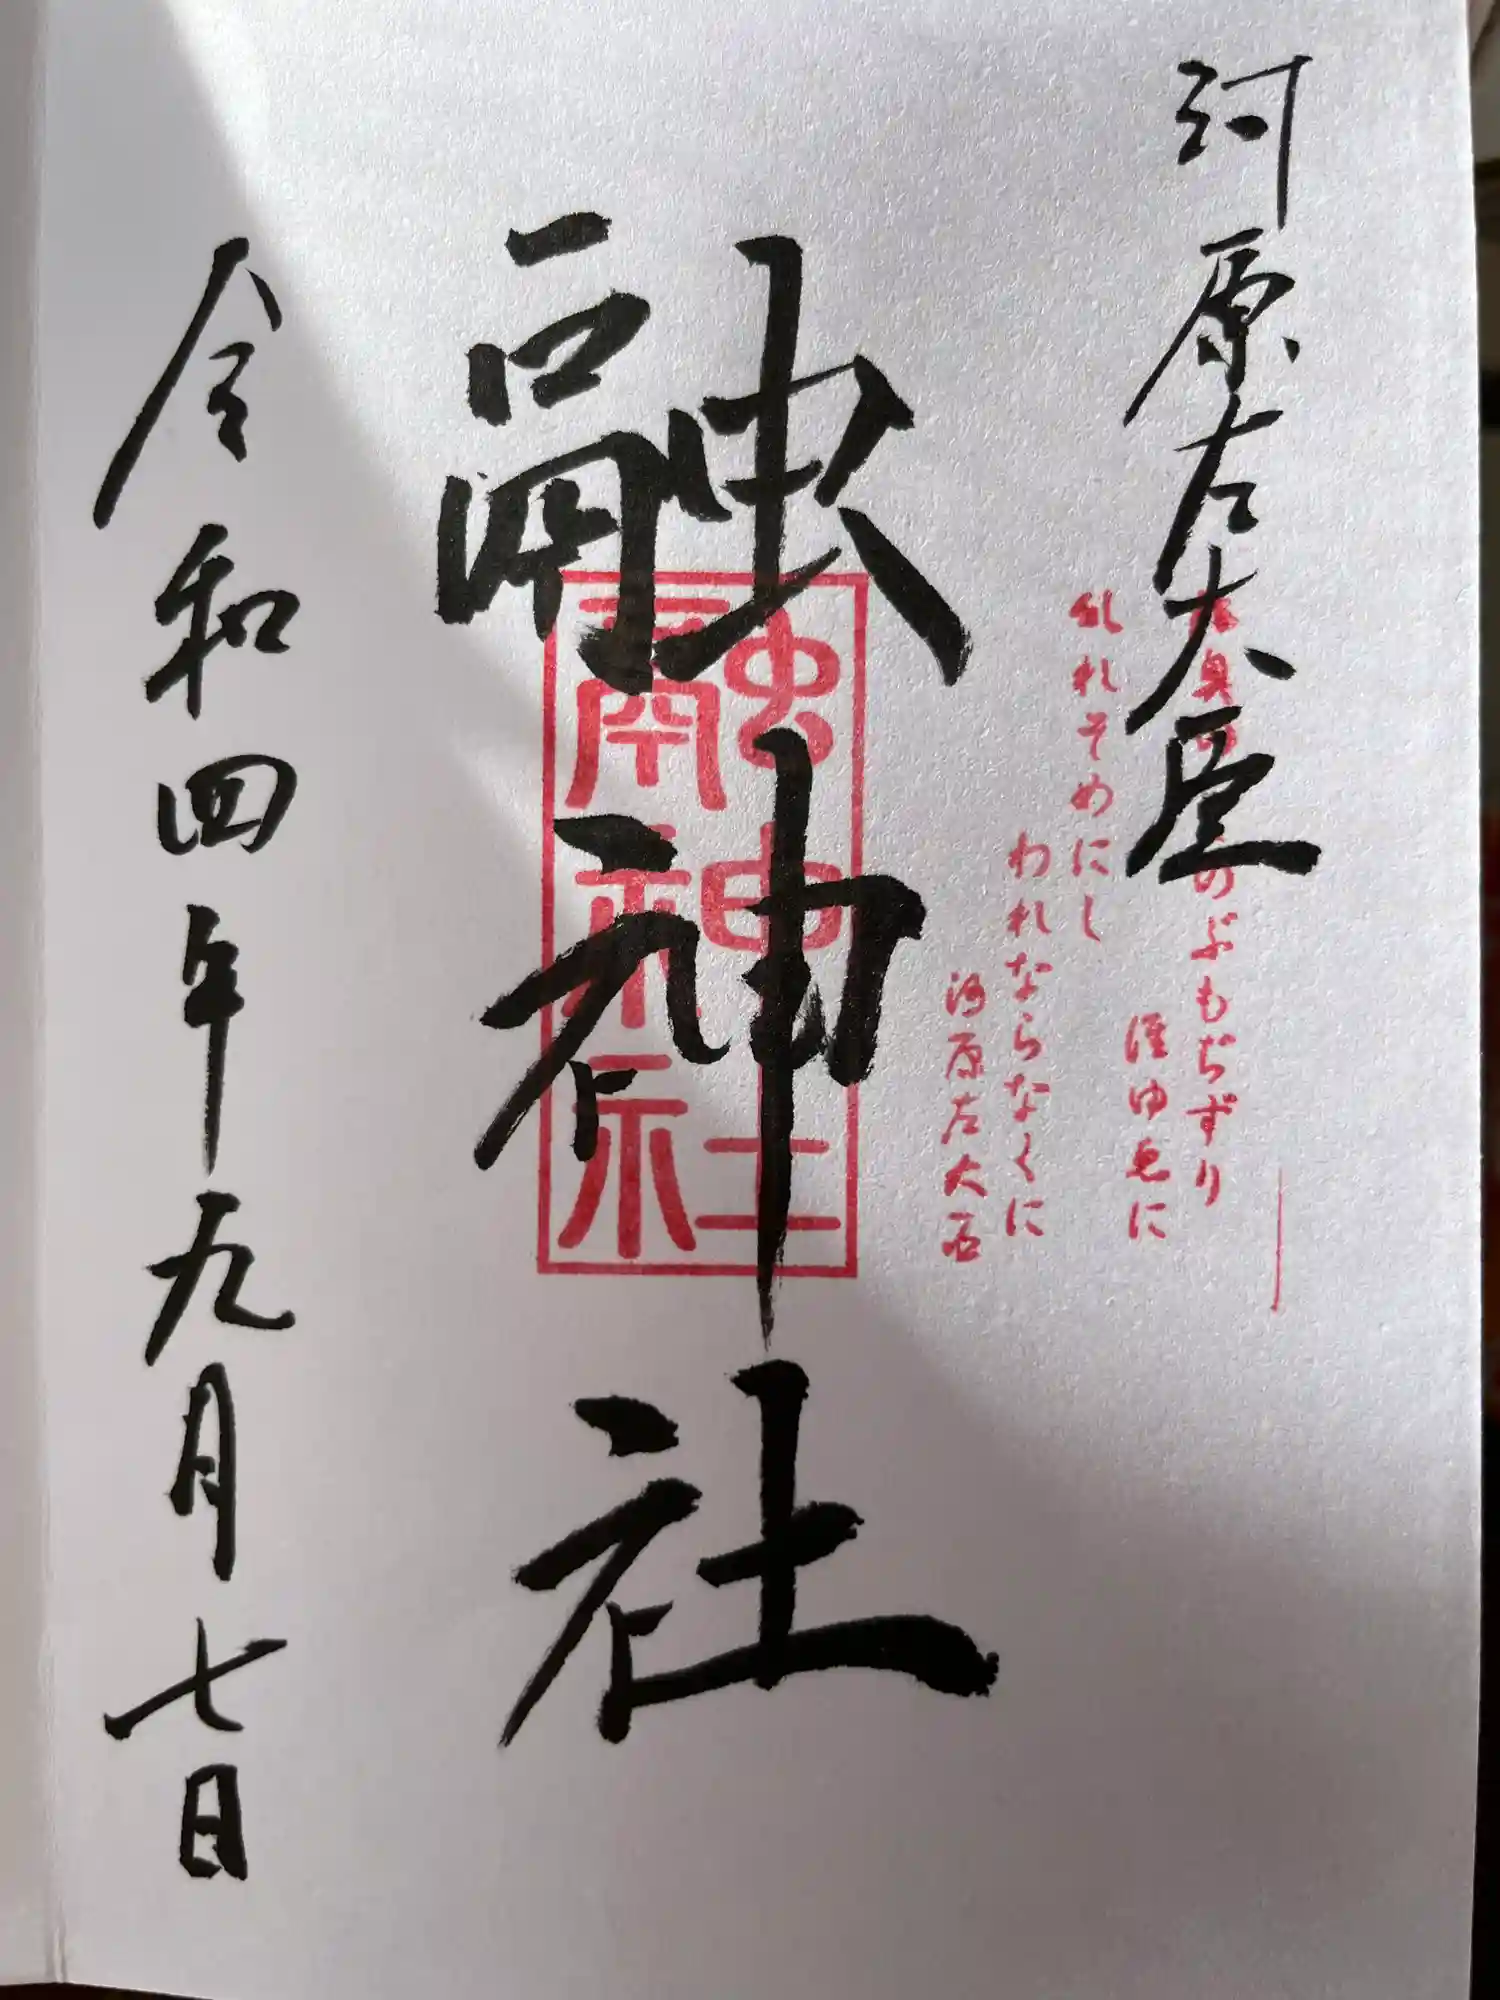 河原左大臣
奥のぶもぢずり
誰ゆゑに
乱れそめにし
われならなくに
河原左大臣
融神社
融神社
令和四年九月七日